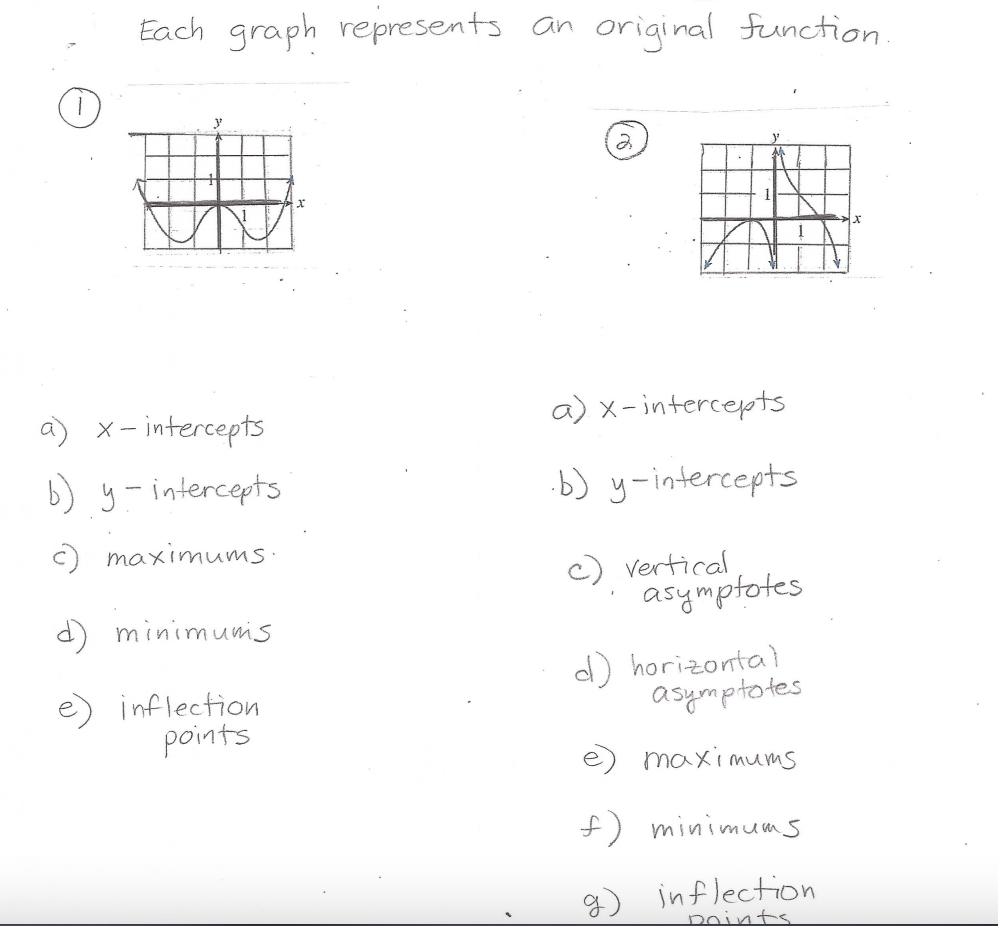 Each graph represents an original function.
1
y
1
x
1
2
y
1
x
1
a) x-intercepts
b) y-intercepts
c) maximums
d) minimums
e) inflection
points
a) x-intercepts
b) y-intercepts
c) vertical
asymptotes
d) horizontal
asymptotes
e) maximums
f) minimums
g) inflection
points